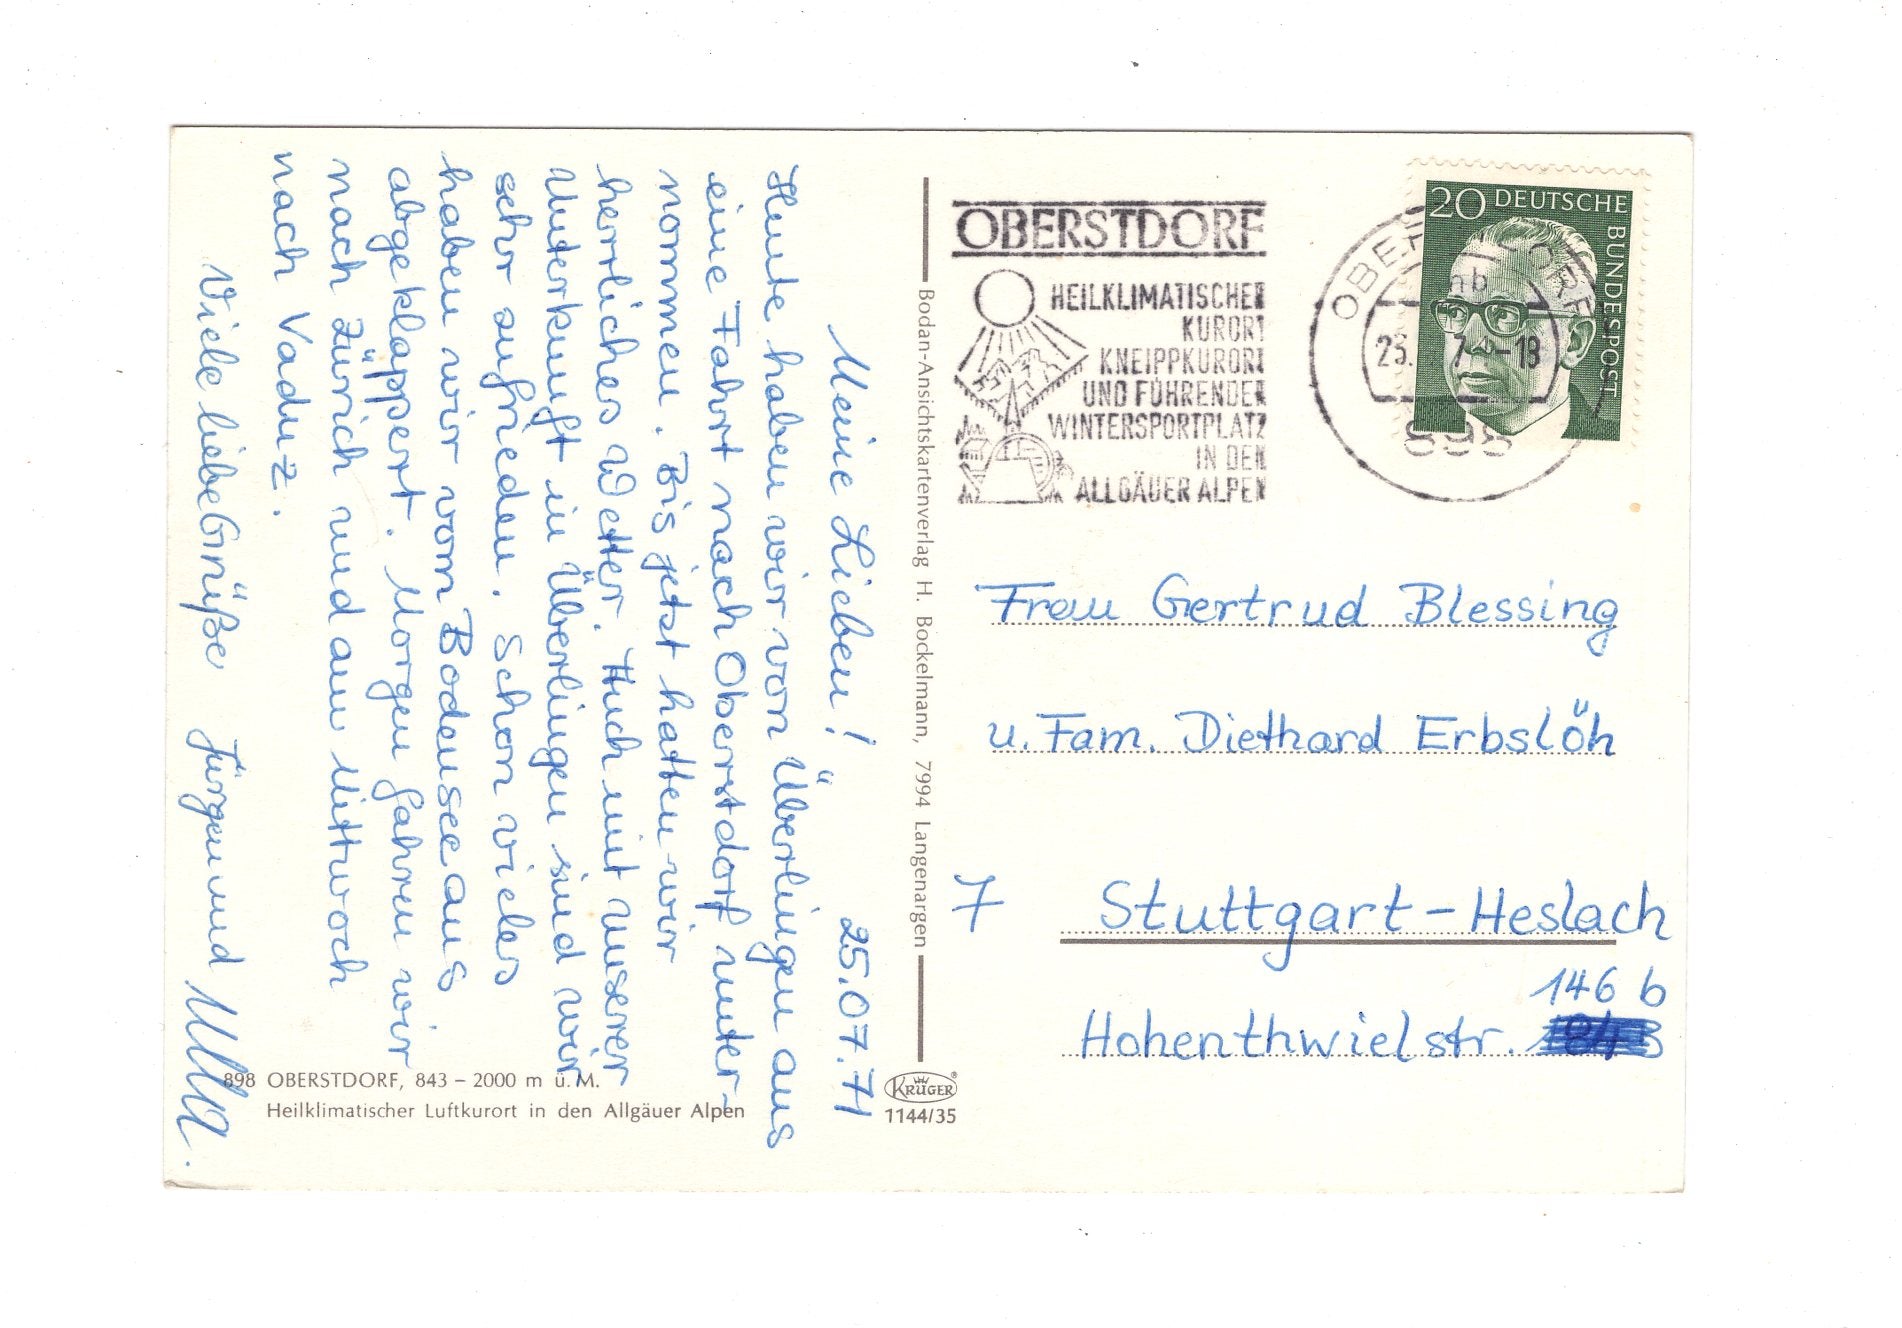 Meine Lieben!
25.07.71
Heute haben wir von Überlingen aus
eine Fahrt nach Oberstdorf unter-
nommen. Bis jetzt hatten wir
herrliches Wetter. Auch mit unserer
Unterkunft in Überlingen sind wir
sehr zufrieden. Schon vieles
haben wir vom Bodensee aus
abgeklappert. Morgen fahren wir
nach Zürich und am Mittwoch
nach Vaduz.
Viele liebe Grüße Jürgen und Ulla.
898 OBERSTDORF, 843 – 2000 m ü. M.
Heilklimatischer Luftkurort in den Allgäuer Alpen
Bodan-Ansichtskartenverlag H. Bockelmann, 7994 Langenargen
KRÜGER®
1144/35
OBERSTDORF
HEILKLIMATISCHER
KURORT
KNEIPPKURORT
UND FÜHRENDER
WINTERSPORTPLATZ
IN DEN
ALLGÄUER ALPEN
nb
-18
898
20 DEUTSCHE
BUNDESPOST
Frau Gertrud Blessing
u. Fam. Diethard Erbslöh
7 Stuttgart-Heslach
146 b
Hohenthwielstr.